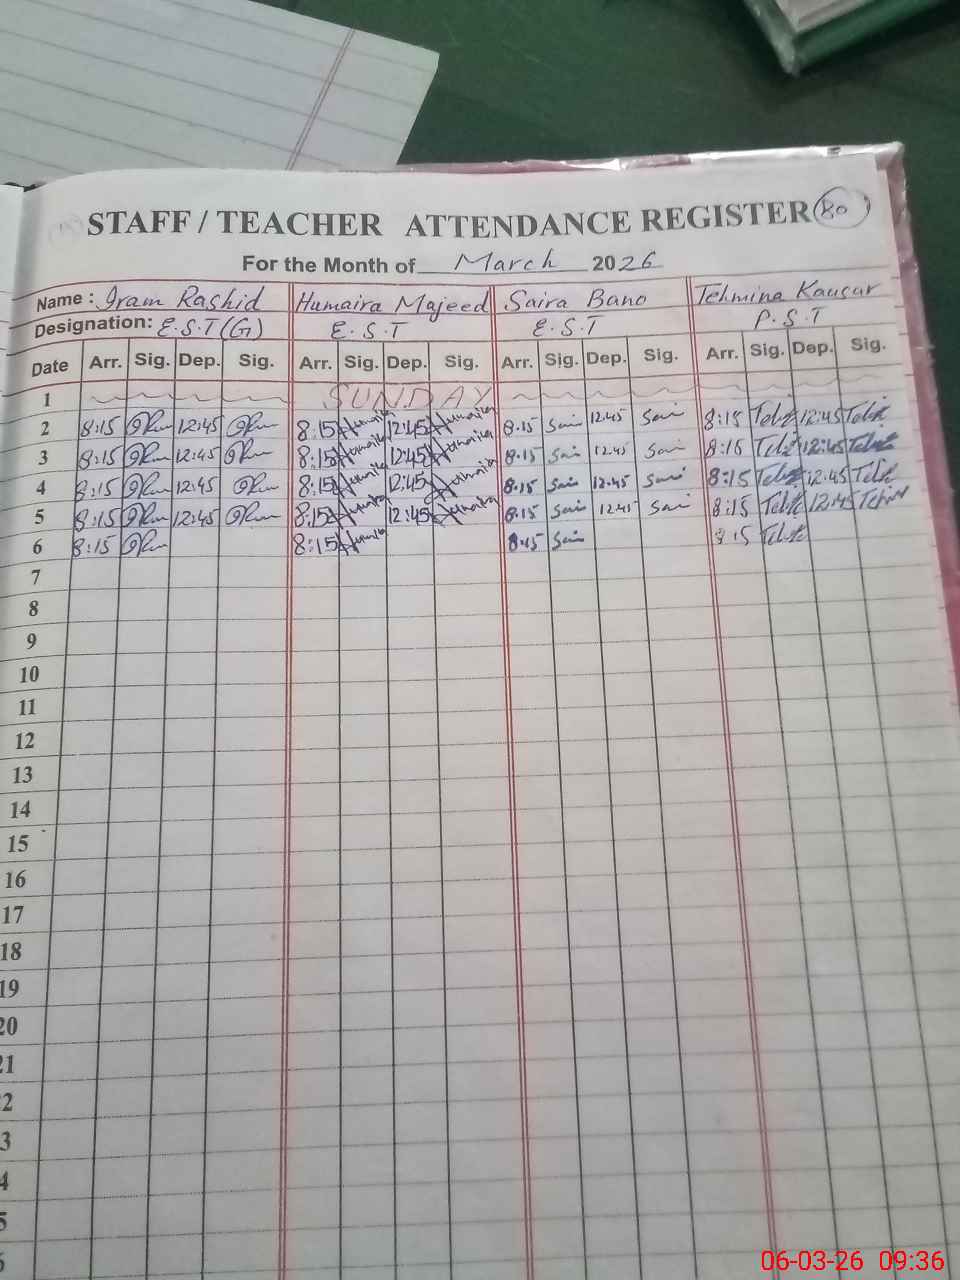 STAFF / TEACHER ATTENDANCE REGISTER 80
For the Month of March 2026
Name : Iram Rashid Humaira Majeed Saira Bano Tehmina Kausar
Designation: E.S.T (G) E.S.T E.S.T P.S.T
Date Arr. Sig. Dep. Sig. Arr. Sig. Dep. Sig. Arr. Sig. Dep. Sig. Arr. Sig. Dep. Sig.
1 SUNDAY
2 8:15 12:45 8:15 Humaira 12:45 Humaira 8:15 Sai 12:45 Sai 8:15 12:45
3 8:15 12:45 8:15 Humaira 12:45 Humaira 8:15 Sai 12:45 Sai 8:15 12:45
4 8:15 12:45 8:15 Humaira 12:45 Humaira 8:15 Sai 12:45 Sai 8:15 12:45
5 8:15 12:45 8:15 Humaira 12:45 Humaira 8:15 Sai 12:45 Sai 8:15 12:45
6 8:15 8:15 Humaira 8:15 Sai 8:15
7
8
9
10
11
12
13
14
15
16
17
18
19
20
21
2
3
4
5
6
06-03-26 09:36